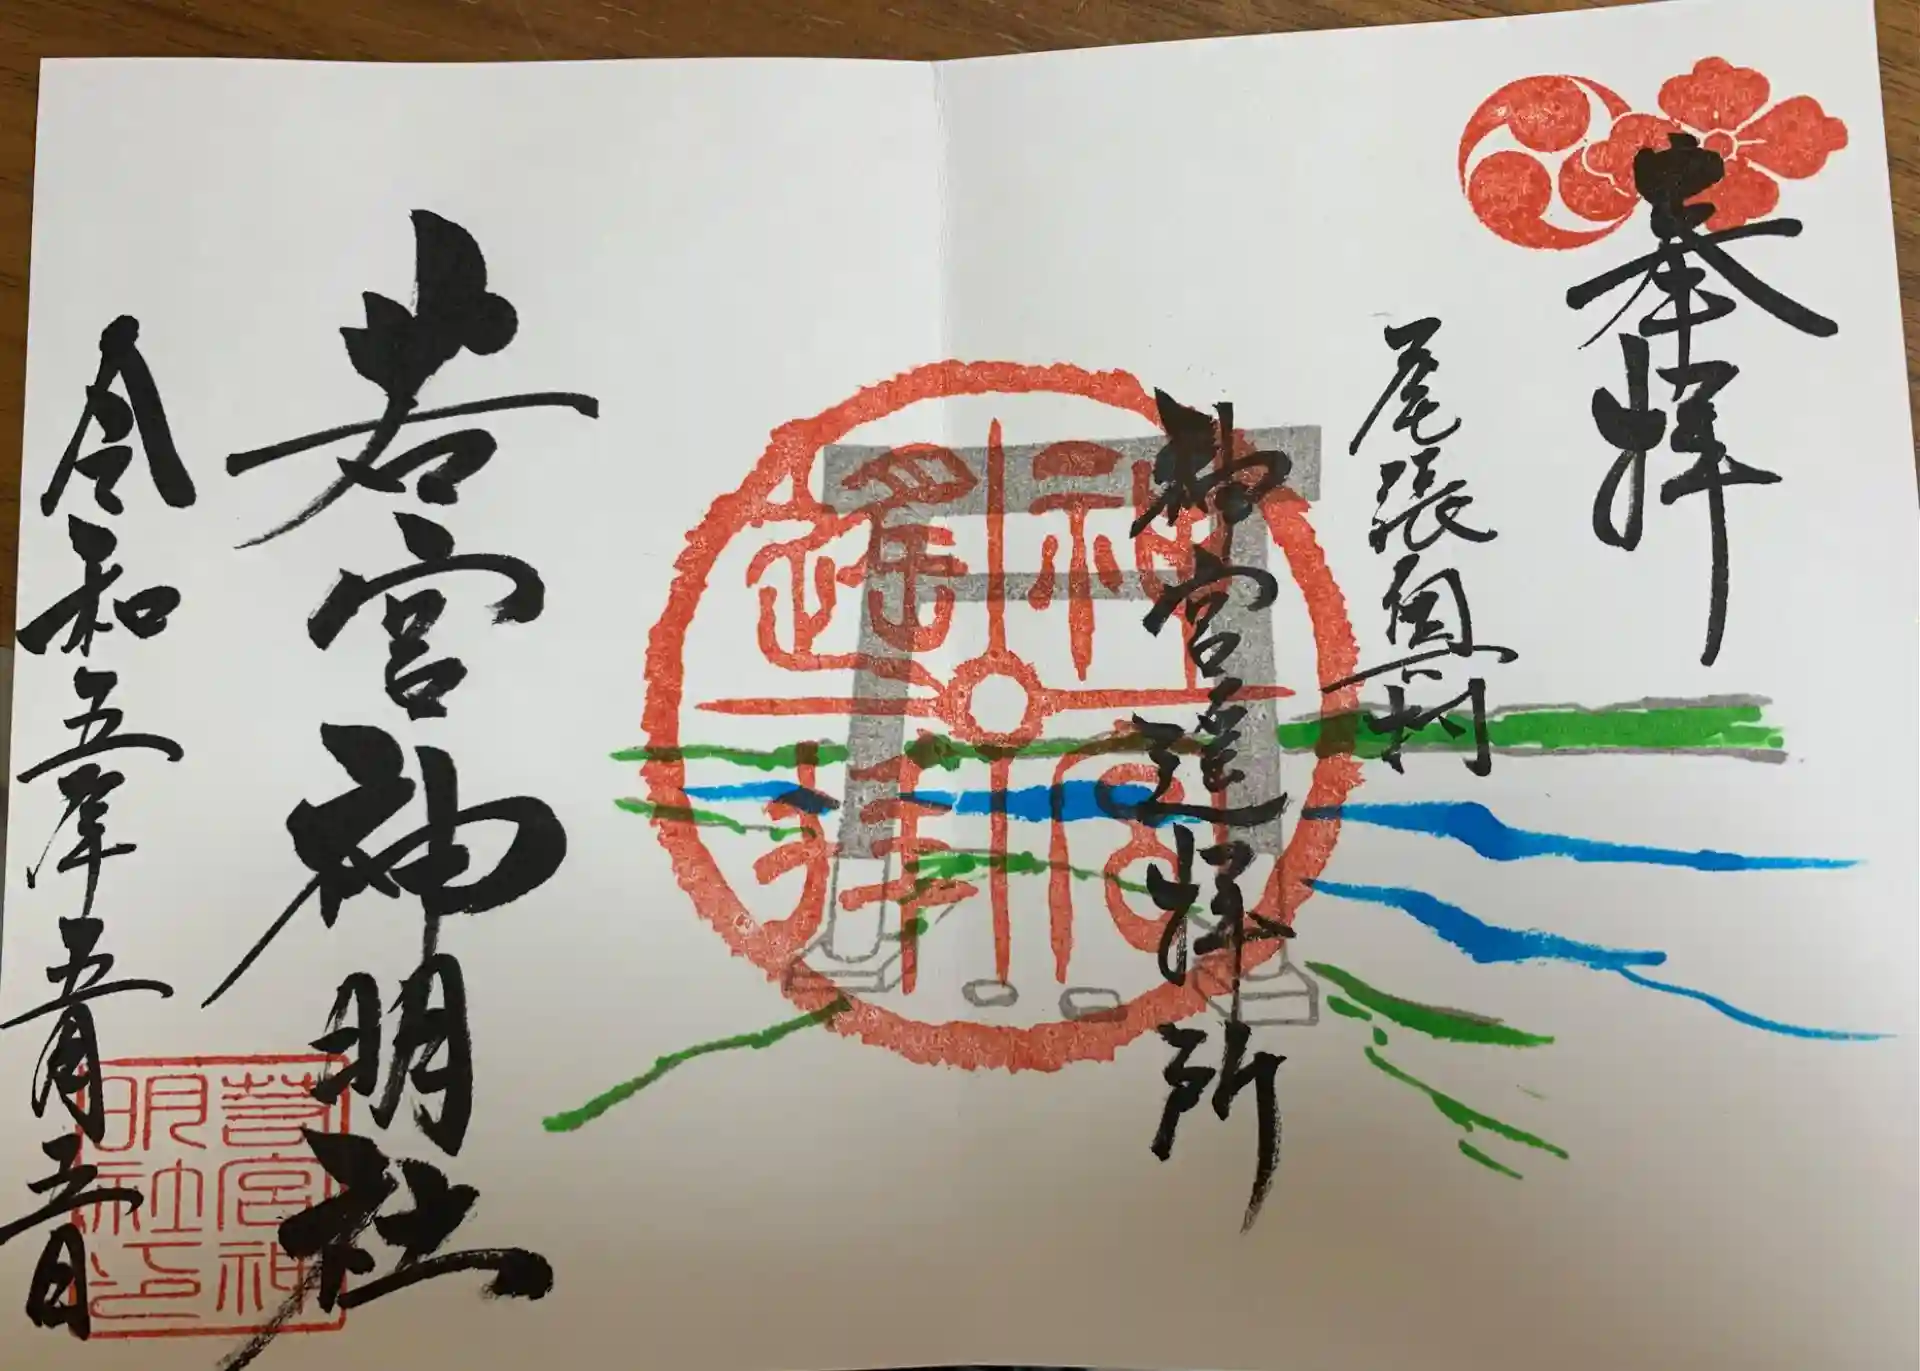 奉拝
尾張奥村
神宮遥拝所
神宮遥拝
若宮神明社
若宮神明社印
令和五年五月五日